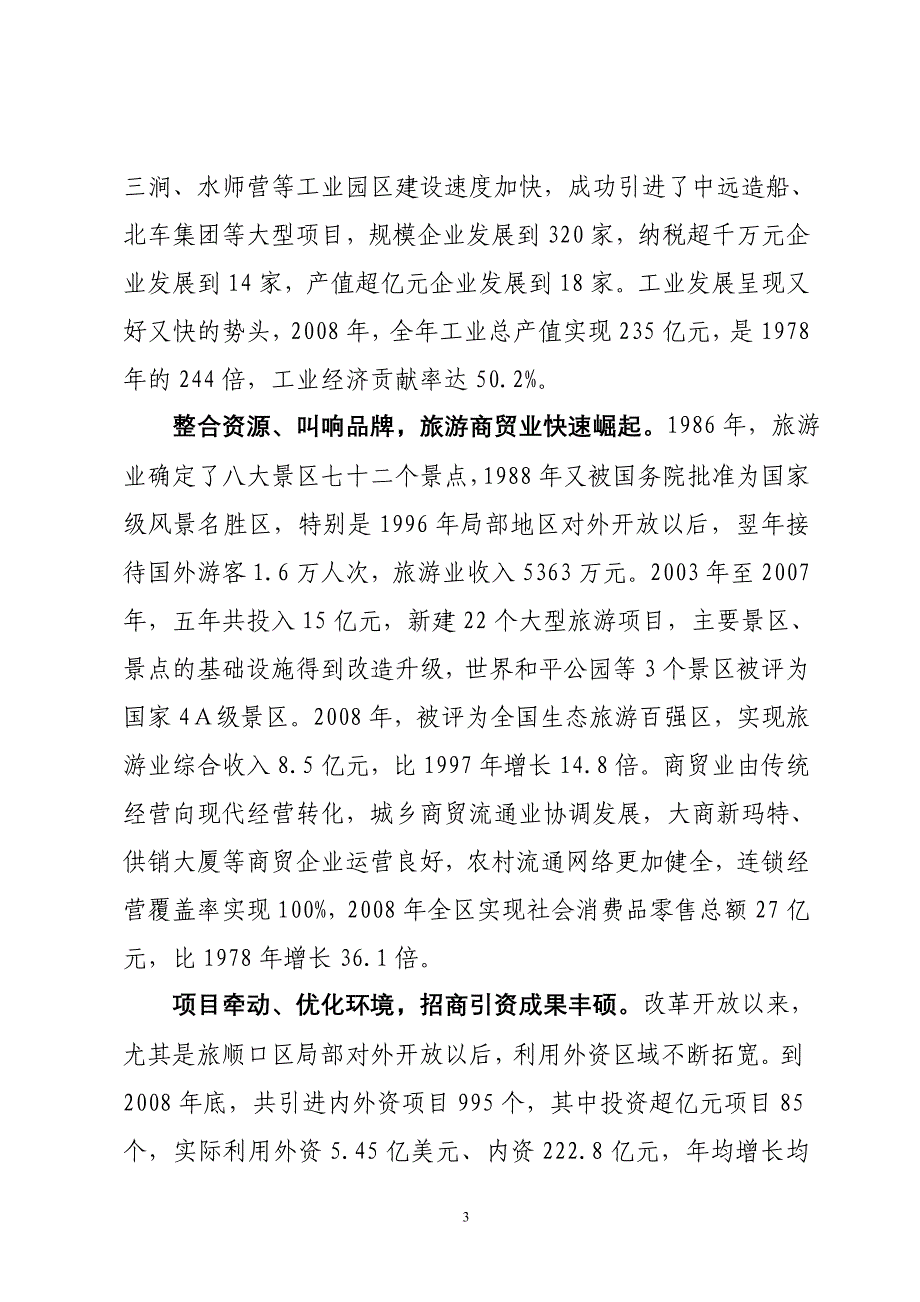 三涧、水师营等工业园区建设速度加快，成功引进了中远造船、
北车集团等大型项目，规模企业发展到 320 家，纳税超千万元企
业发展到 14 家，产值超亿元企业发展到 18 家。工业发展呈现又
好又快的势头，2008 年，全年工业总产值实现 235 亿元，是 1978
年的 244 倍，工业经济贡献率达 50.2%。
整合资源、叫响品牌，旅游商贸业快速崛起。1986 年，旅游
业确定了八大景区七十二个景点，1988 年又被国务院批准为国家
级风景名胜区，特别是 1996 年局部地区对外开放以后，翌年接
待国外游客 1.6 万人次，旅游业收入 5363 万元。2003 年至 2007
年，五年共投入 15 亿元，新建 22 个大型旅游项目，主要景区、
景点的基础设施得到改造升级，世界和平公园等 3 个景区被评为
国家 4A 级景区。2008 年，被评为全国生态旅游百强区，实现旅
游业综合收入 8.5 亿元，比 1997 年增长 14.8 倍。商贸业由传统
经营向现代经营转化，城乡商贸流通业协调发展，大商新玛特、
供销大厦等商贸企业运营良好，农村流通网络更加健全，连锁经
营覆盖率实现 100%，2008 年全区实现社会消费品零售总额 27 亿
元，比 1978 年增长 36.1 倍。
项目牵动、优化环境，招商引资成果丰硕。改革开放以来，
尤其是旅顺口区局部对外开放以后，利用外资区域不断拓宽。到
2008 年底，共引进内外资项目 995 个，其中投资超亿元项目 85
个，实际利用外资 5.45 亿美元、内资 222.8 亿元，年均增长均
3